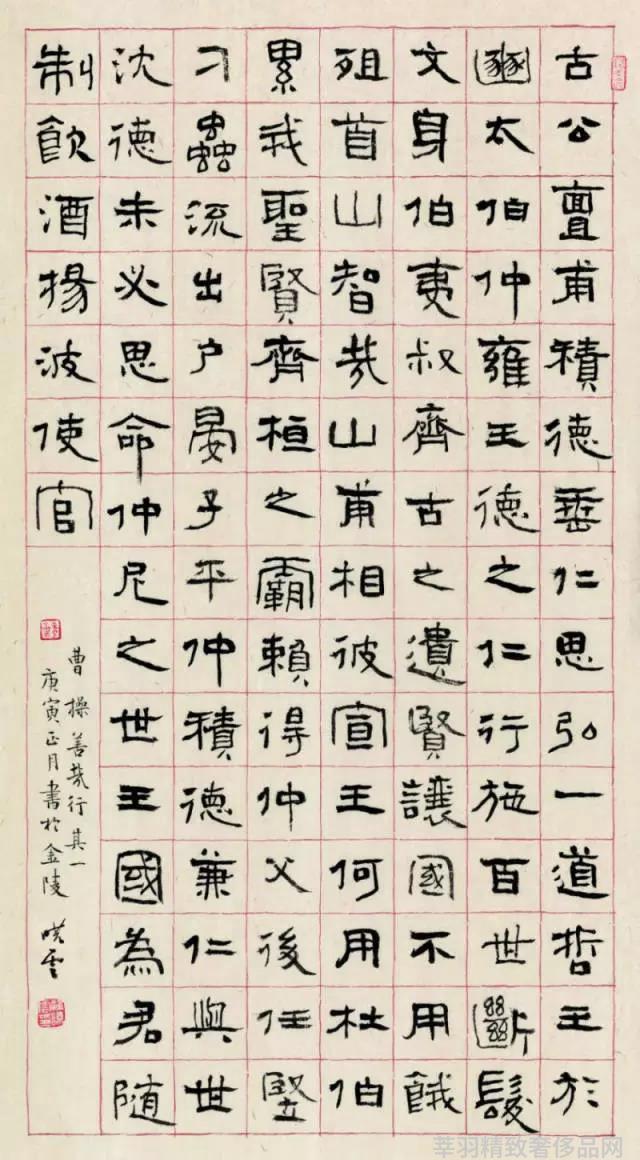 古公亶甫積德垂仁思弘一道哲王於
豳太伯仲雍王德之仁行施百世斷髮
文身伯夷叔齊古之遺賢讓國不用餓
殂首山智哉山甫相彼宣王何用杜伯
累我聖賢齊桓之霸賴得仲父後任豎
刁蟲流出户晏子平仲積德兼仁與世
沈德未必思命仲尼之世王國為君随
制飲酒揚波使官
曹操善哉行其一
庚寅正月書於金陵
莘羽精致奢侈品网